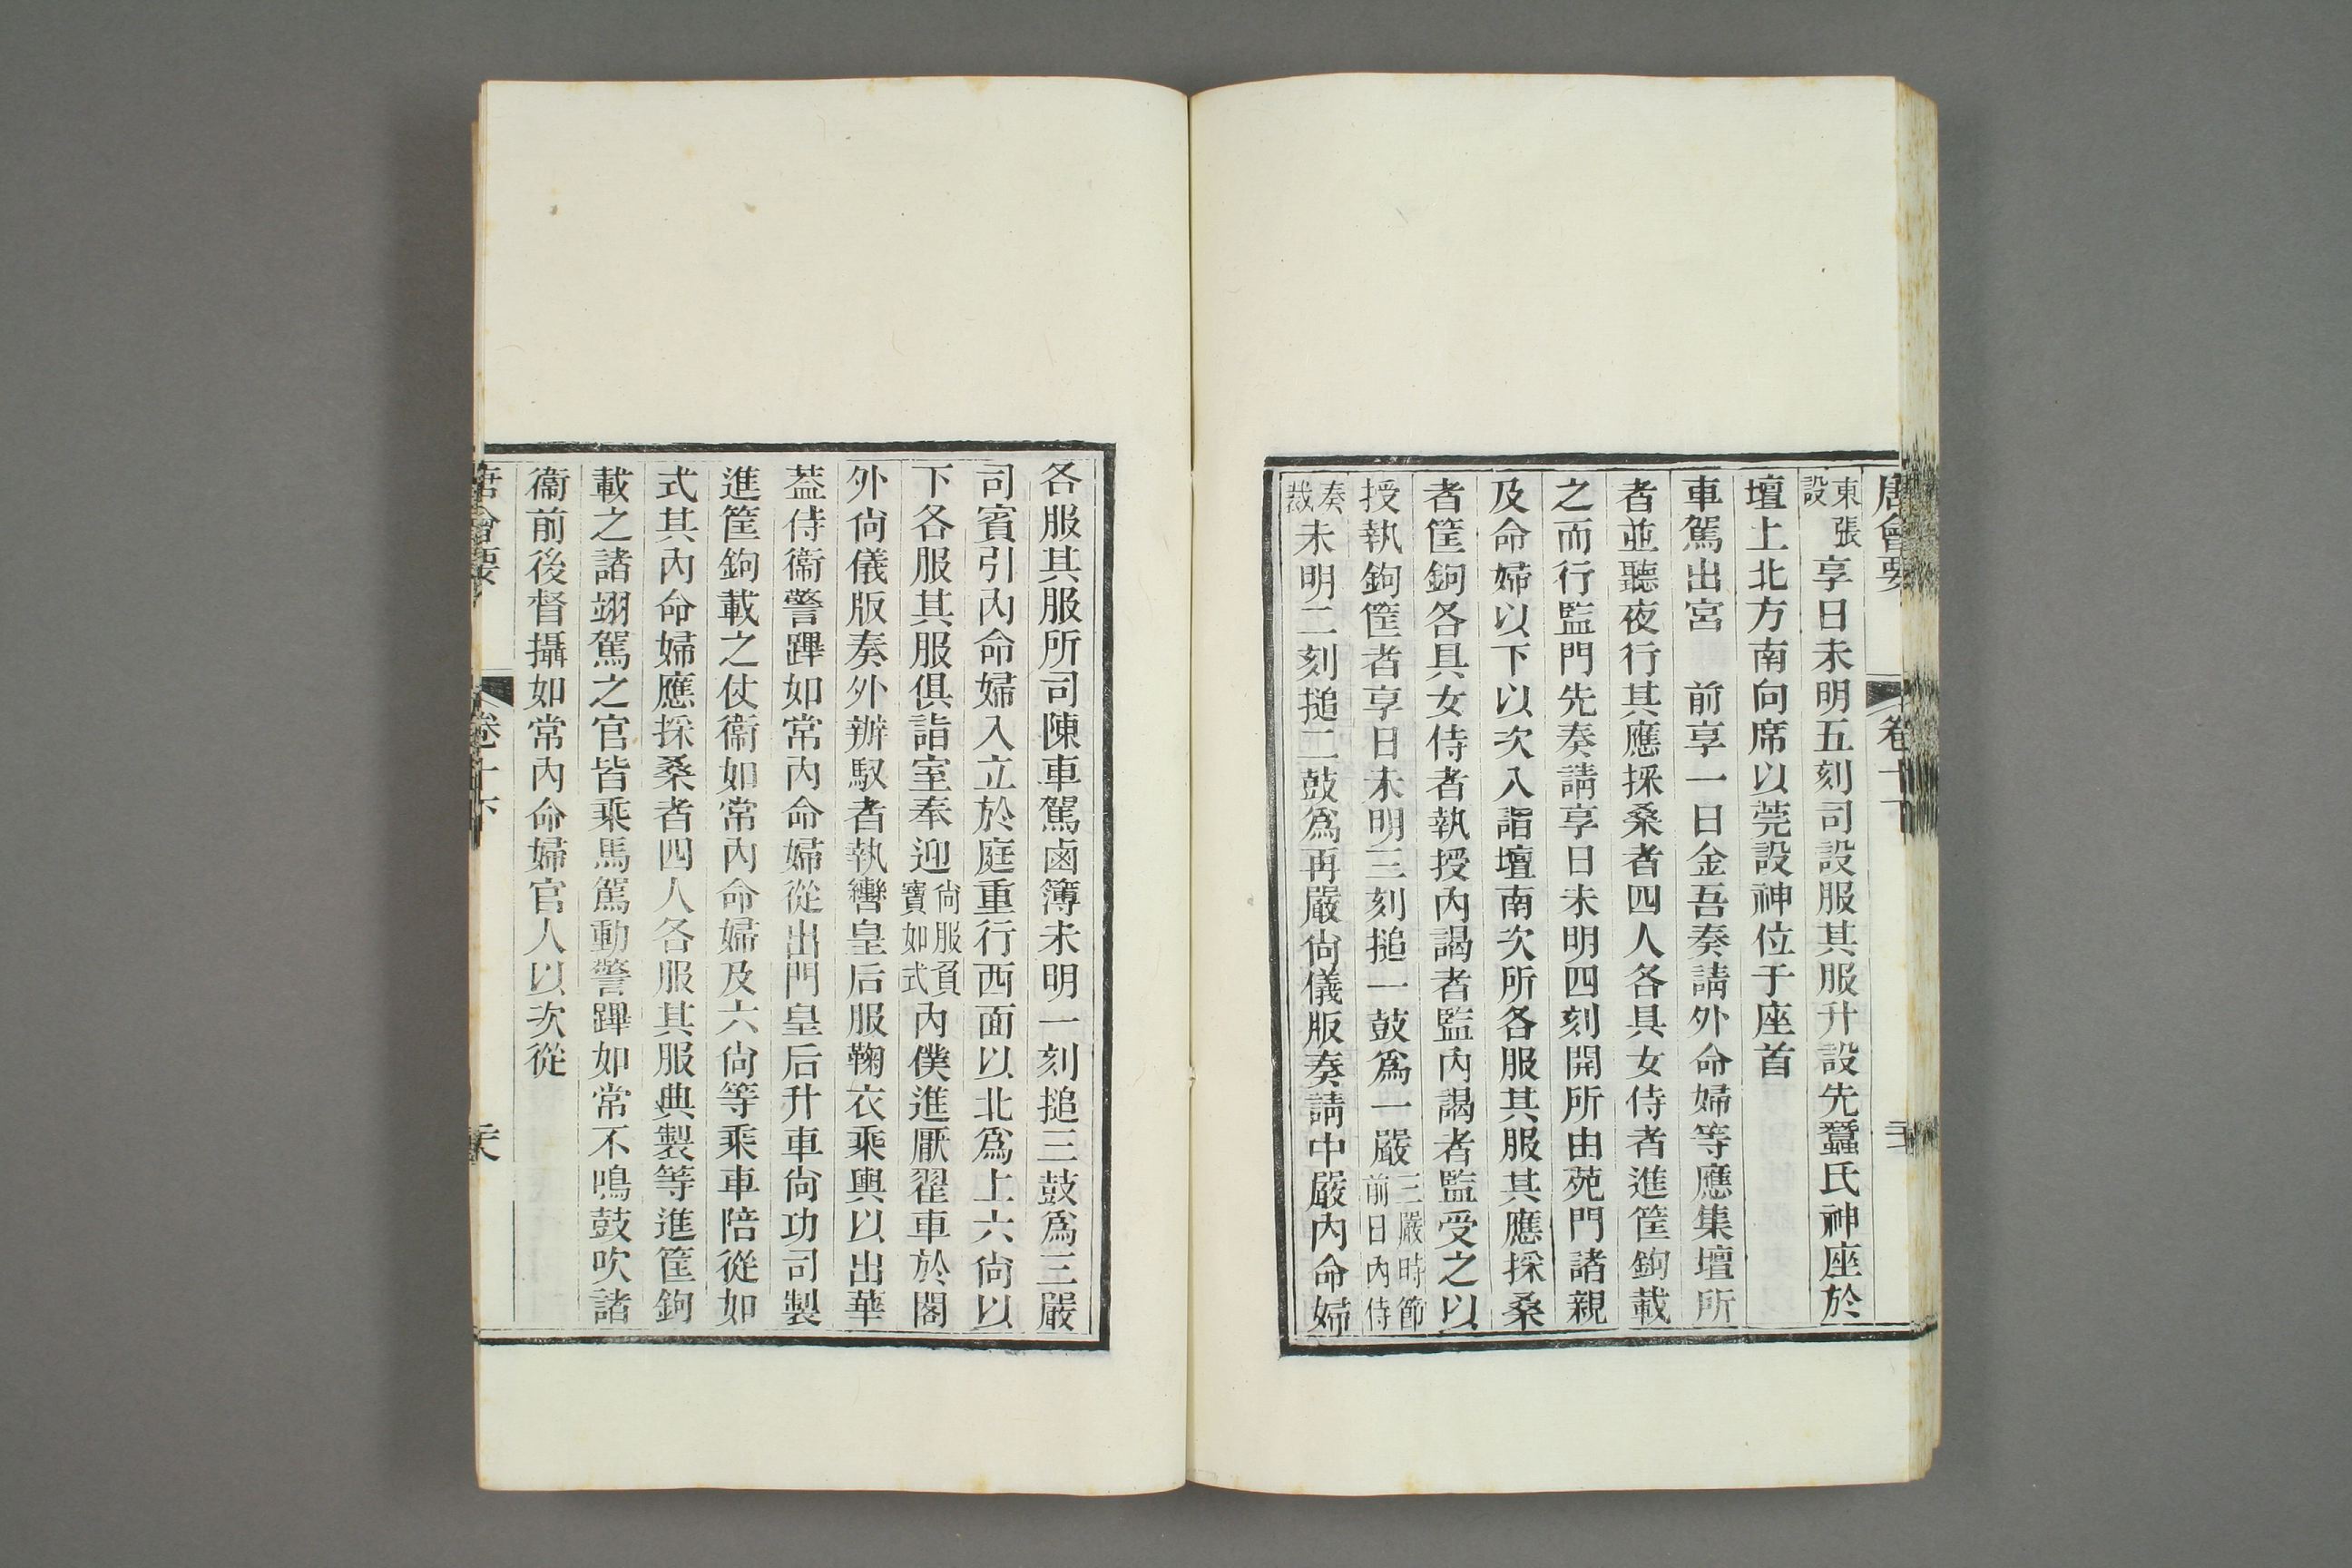 唐會要 卷十下
東張設享日未明五刻司設服其服升設先蠶氏神座於
壇上北方南向席以莞設神位于座首
車駕出宮 前享一日金吾奏請外命婦等應集壇所
者並聽夜行其應採桑者四人各具女侍者進筐鉤載
之而行監門先奏請享日未明四刻開所由苑門諸親
及命婦以下以次入詣壇南次所各服其服其應採桑
者筐鉤各具女侍者執授內謁者監內謁者監受之以
授執鉤筐者享日未明三刻搥一鼓為一嚴三嚴時節前日內侍
奏裁未明二刻搥二鼓為再嚴尙儀版奏請中嚴內命婦
各服其服所司陳車駕鹵簿未明一刻搥三鼓為三嚴
司賓引內命婦入立於庭重行西面以北為上六尙以
下各服其服俱詣室奉迎尙服負寶如式內僕進厭翟車於閤
外尙儀版奏外辦馭者執轡皇后服鞠衣乘輿以出華
葢侍衞警蹕如常內命婦從出門皇后升車尙功司製
進筐鉤載之仗衞如常內命婦及六尙等乘車陪從如
式其內命婦應採桑者四人各服其服典製等進筐鉤
載之諸翊駕之官皆乘馬駕動警蹕如常不鳴鼓吹諸
衞前後督攝如常內命婦官人以次從
唐會要 卷十下